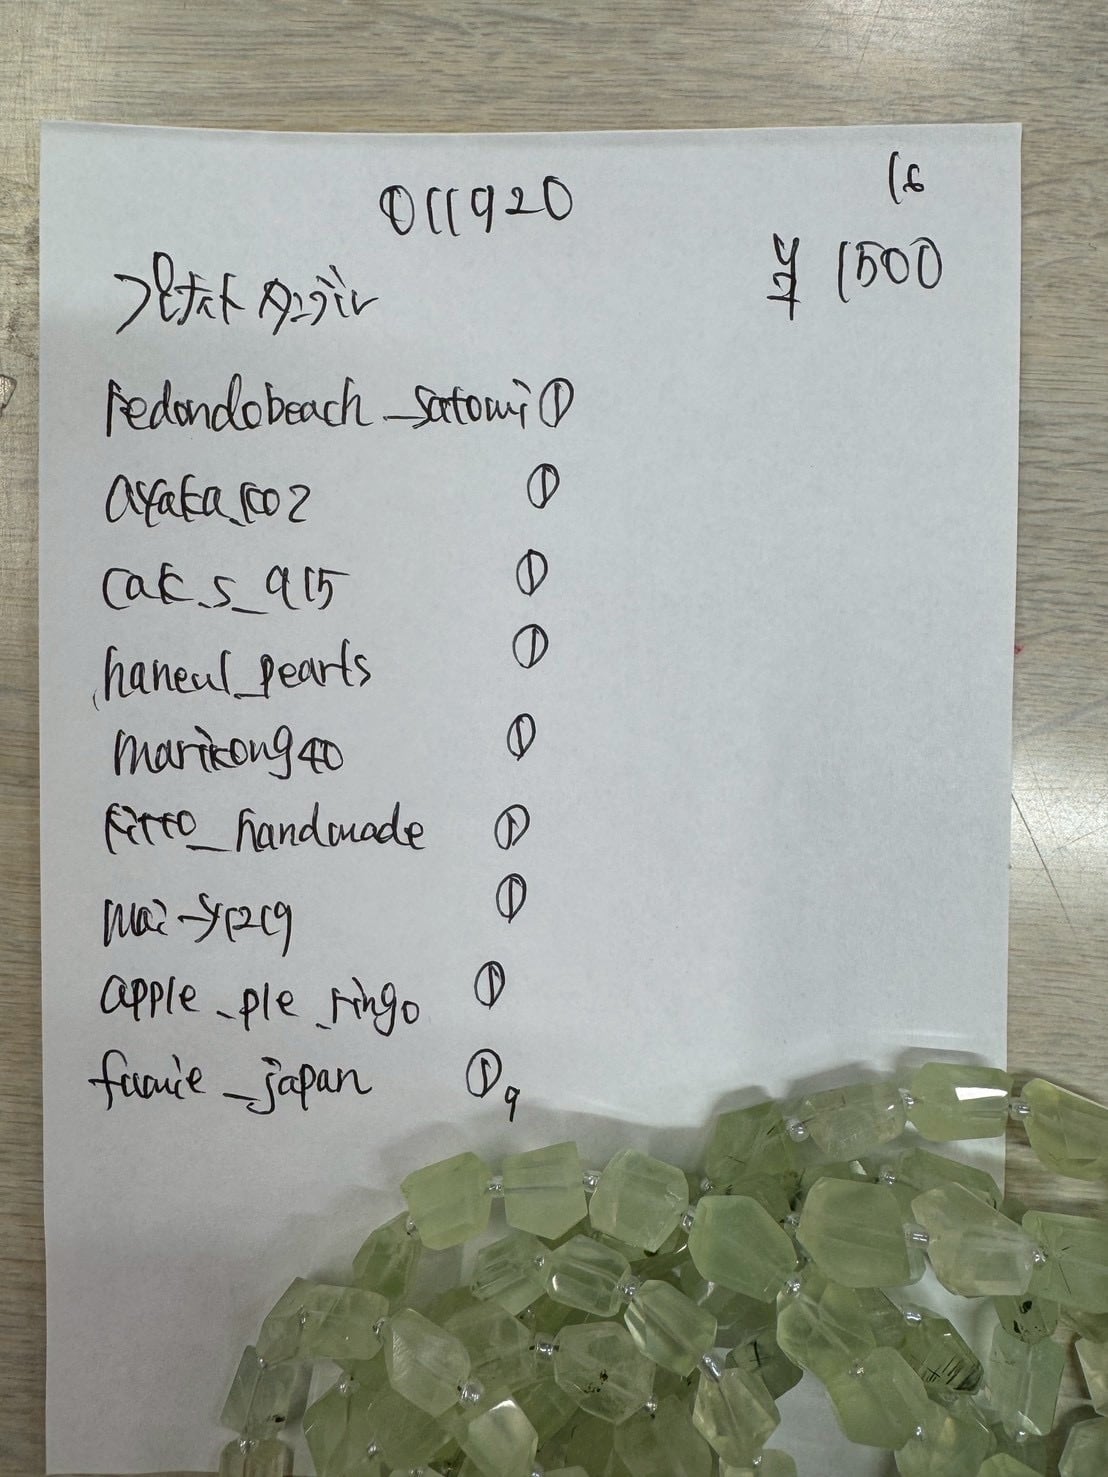 011920
16
¥ 1500
redondobeach_satomi ①
ayaka.co2 ①
cak.s_915 ①
haneul_pearls ①
marikong40 ①
kitto_handmade ①
mai-y1219 ①
apple_pie_ringo ①
fumie_japan ① 9